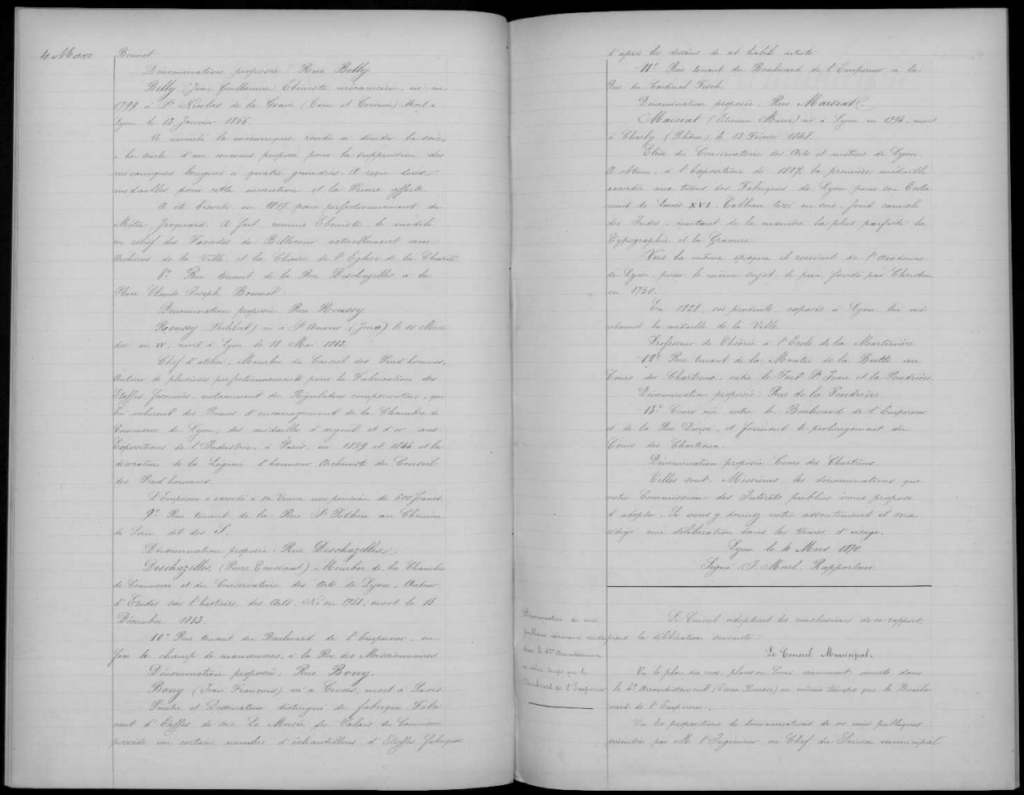 4 Mars
Bonnet
Dénomination proposée : Rue Belly
Belly (Jean Guillaume) Ebéniste mécanicien, né en
1799 à St Nicolas de la Grave (Tarn et Garonne) Mort à
Lyon le 13 Janvier 1858
A inventé la mécanique ronde à dévider la soie
à la suite d'un concours proposé pour la suppression des
mécaniques longues à quatre guindres. A reçu deux
médailles pour cette invention et la Prime offerte
A été breveté en 1857 pour perfectionnement du
Métier Jacquard. A fait, comme Ebéniste le modèle
en relief des Façades de Bellecour actuellement aux
Archives de la Ville et la Chaire de l'Eglise de la Charité
8° Rue tenant de la Rue Deschazelles à la
Place Claude Joseph Bonnet
Dénomination proposée Rue Roussy
Roussy (Philibert) né à St Amour (Jura) le 10
an XI, mort à Lyon le 18 Mai 1863.
Chef d'atelier, Membre du Conseil des Prud'hommes,
Auteur de plusieurs perfectionnements pour la Fabrication des
Etoffes façonnées, notamment du Régulateur compensateur, qui
lui valurent des Primes d'encouragement de la Chambre de
Commerce de Lyon, des médailles d'argent et d'or aux
Expositions de l'Industrie, à Paris, en 1839 et 1844 et la
décoration de la Légion d'honneur Archiviste du Conseil
des Prud'hommes.
L'Empereur a accordé à sa Veuve une pension de 600 francs
9° Rue tenant de la Rue St Pothin au Chemin
de Serin dit des S.
Dénomination proposée : Rue Deschazelles
Deschazelles (Pierre Toussaint) Membre de la Chambre
de Commerce et du Conservatoire des Arts de Lyon, Auteur
d'Etudes sur l'histoire des Arts. Né en 1751, mort le 15
Décembre 1833.
10° Rue tenant du Boulevard de l'Empereur, en
face le champ de manœuvres, à la Rue des Missionnaires
Dénomination proposée : Rue Bony.
Bony (Jean François) né à Givors, mort à Paris.
Peintre et Dessinateur distingué de fabrique Fabri-
cant d'Etoffes de soie Le Musée du Palais du Commerce
possède un certain nombre d'échantillons d'Etoffes fabriqués
d'après les dessins de cet habile artiste
11° Rue tenant du Boulevard de l'Empereur à la
Rue du Cardinal Fesch.
Dénomination proposée : Rue Maisiat
Maisiat (Etienne Marie) né à Lyon en 1794, mort
à Charly (Rhône) le 13 Février 1848.
Elève du Conservatoire des Arts et métiers de Lyon
A obtenu, à l'Exposition de 1827, la première médaille
accordée aux tissus des Fabriques de Lyon pour son Testa-
ment de Louis XVI. Tableau tissé en soie, fond
des Indes, imitant de la manière la plus parfaite la
Typographie et la Gravure
Vers la même époque il recevait de l'Académie
de Lyon, pour le même sujet, le prix fondé par Christin
en 1750.
En 1828, ses produits exposés à Lyon, lui
valurent la médaille de la Ville
Professeur de Théorie à l'Ecole de la Martinière
12° Rue tenant de la Montée de la Butte au
Cours des Chartreux, entre le Fort St Jean et la Poudrière.
Dénomination proposée, Rue de la Poudrière.
13° Cours né entre le Boulevard de l'Empereur
et de la Rue Duroc, et formant le prolongement du
Cours des Chartreux.
Dénomination proposée Cours des Chartreux.
Telles sont, Messieurs, les dénominations que
votre Commission des Intérêts publics vous propose
d'adopter. Si vous y donnez votre assentiment il sera
rédigé une délibération dans les termes d'usage.
Lyon le 4 Mars 1870
Signé J. Morel, Rapporteur
Dénomination de voies
publiques
dans le 4e Arrondissement
en même temps que le
Boulevard de l'Empereur
Le Conseil adoptant les conclusions de ce rapport
prend la délibération suivante :
Le Conseil Municipal.
Vu le plan des rues, places ou Cours récemment ouverts dans
le 4e Arrondissement (Croix Rousse) en même temps que le Boule-
vard de l'Empereur ;
Vu les propositions de dénominations de ces voies publiques
présentées par M. l'Ingénieur en Chef du Service municipal